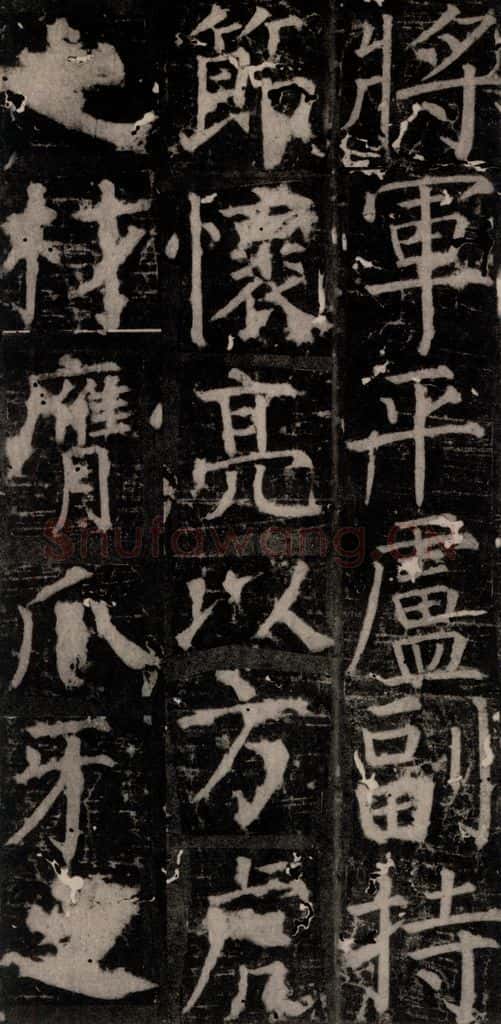 將軍平盧副持
節懷亮以方虎
之材膺爪牙之
shufawang.cn